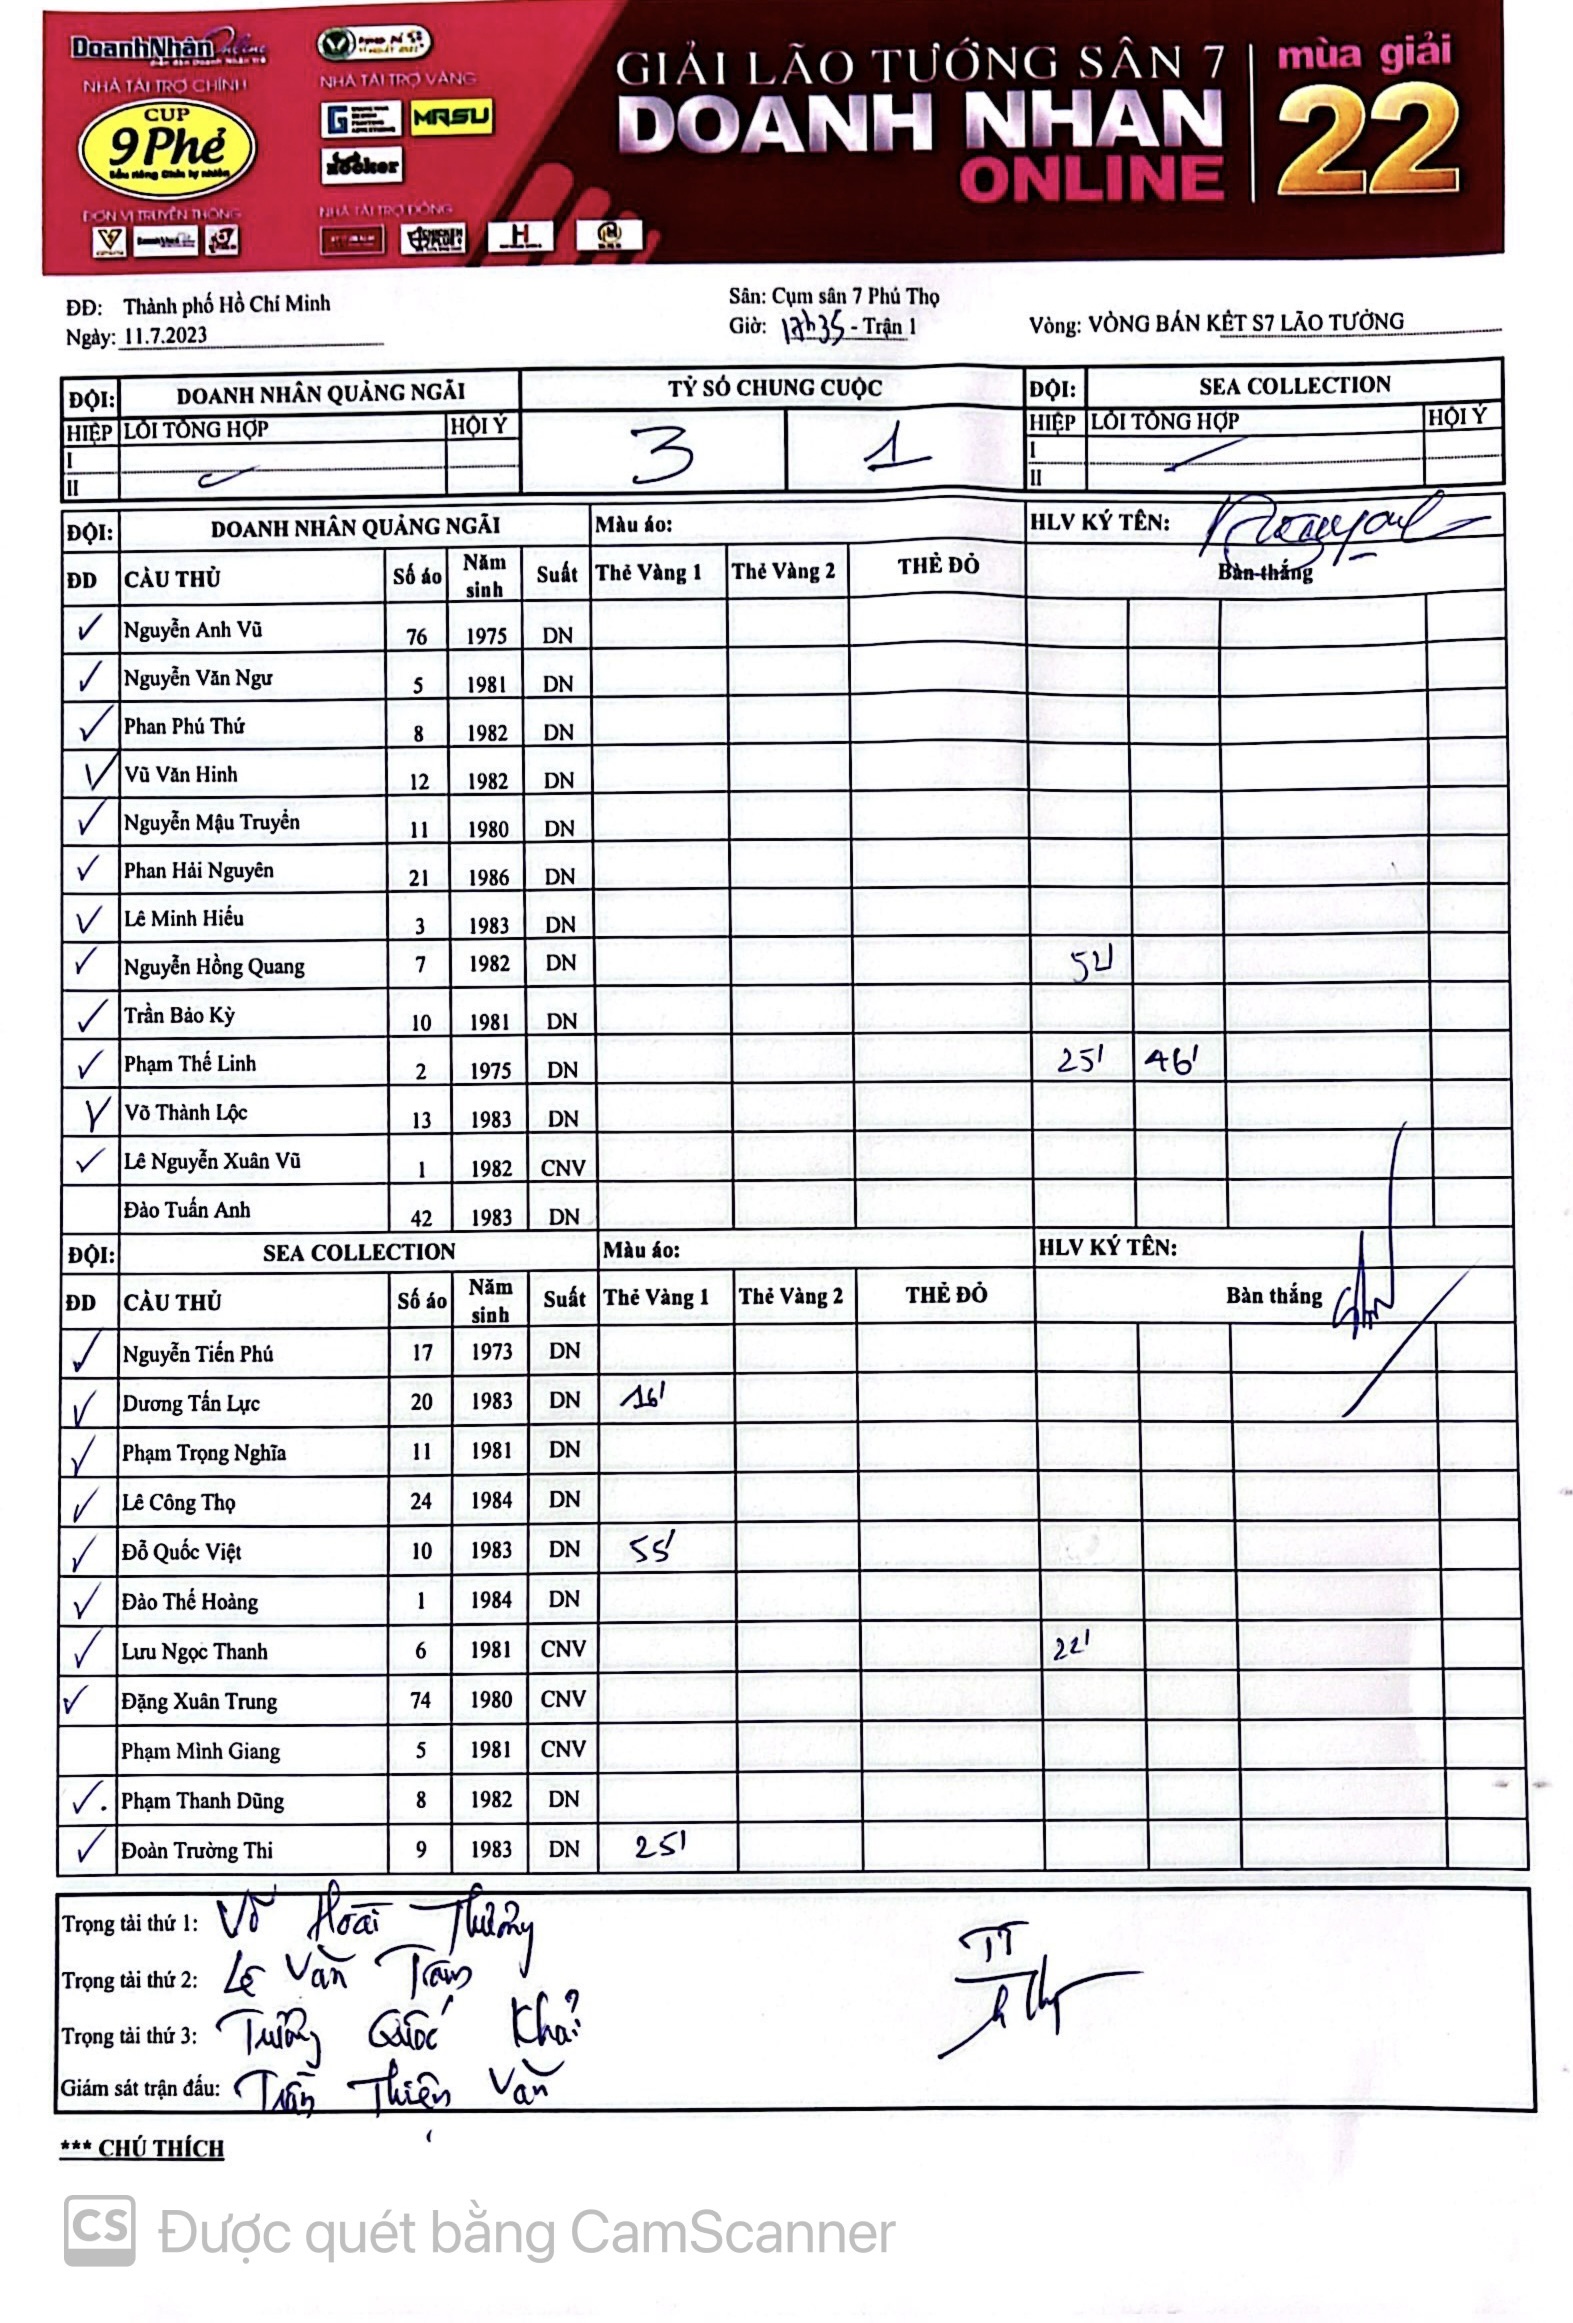 DoanhNhân Online
NHÀ TÀI TRỢ CHÍNH
CUP
9 Phẻ
Sầu riêng Chín tự nhiên
ĐƠN VỊ TRUYỀN THÔNG
NHÀ TÀI TRỢ VÀNG
MASU
NHÀ TÀI TRỢ ĐỒNG
CHICKEN PLUS
H
GIẢI LÃO TƯỚNG SÂN 7
DOANH NHÂN
ONLINE
mùa giải
22
ĐĐ: Thành phố Hồ Chí Minh
Ngày: 11.7.2023
Sân: Cụm sân 7 Phú Thọ
Giờ: 17h35 - Trận 1
Vòng: VÒNG BÁN KẾT S7 LÃO TƯỚNG
ĐỘI: DOANH NHÂN QUẢNG NGÃI TỶ SỐ CHUNG CUỘC ĐỘI: SEA COLLECTION
HIỆP LỖI TỔNG HỢP HỘI Ý 3 1 HIỆP LỖI TỔNG HỢP HỘI Ý
I I
II II
ĐỘI: DOANH NHÂN QUẢNG NGÃI Màu áo: HLV KÝ TÊN:
ĐD CẦU THỦ Số áo Năm sinh Suất Thẻ Vàng 1 Thẻ Vàng 2 THẺ ĐỎ Bàn thắng
✓ Nguyễn Anh Vũ 76 1975 DN
✓ Nguyễn Văn Ngư 5 1981 DN
✓ Phan Phú Thứ 8 1982 DN
✓ Vũ Văn Hinh 12 1982 DN
✓ Nguyễn Mậu Truyền 11 1980 DN
✓ Phan Hải Nguyên 21 1986 DN
✓ Lê Minh Hiếu 3 1983 DN
✓ Nguyễn Hồng Quang 7 1982 DN
✓ Trần Bảo Kỳ 10 1981 DN
✓ Phạm Thế Linh 2 1975 DN 25' 46'
✓ Võ Thành Lộc 13 1983 DN
✓ Lê Nguyễn Xuân Vũ 1 1982 CNV
Đào Tuấn Anh 42 1983 DN
ĐỘI: SEA COLLECTION Màu áo: HLV KÝ TÊN:
ĐD CẦU THỦ Số áo Năm sinh Suất Thẻ Vàng 1 Thẻ Vàng 2 THẺ ĐỎ Bàn thắng
✓ Nguyễn Tiến Phú 17 1973 DN
✓ Dương Tấn Lực 20 1983 DN 16'
✓ Phạm Trọng Nghĩa 11 1981 DN
✓ Lê Công Thọ 24 1984 DN
✓ Đỗ Quốc Việt 10 1983 DN 55'
✓ Đào Thế Hoàng 1 1984 DN
✓ Lưu Ngọc Thanh 6 1981 CNV 22'
✓ Đặng Xuân Trung 74 1980 CNV
Phạm Minh Giang 5 1981 CNV
✓ Phạm Thanh Dũng 8 1982 DN
✓ Đoàn Trường Thi 9 1983 DN 25'
Trọng tài thứ 1: Võ Hoài Thương
Trọng tài thứ 2: Lê Văn
Trọng tài thứ 3: Quốc Khải
Giám sát trận đấu: Trần Thiện Văn
TT
*** CHÚ THÍCH
CS Được quét bằng CamScanner